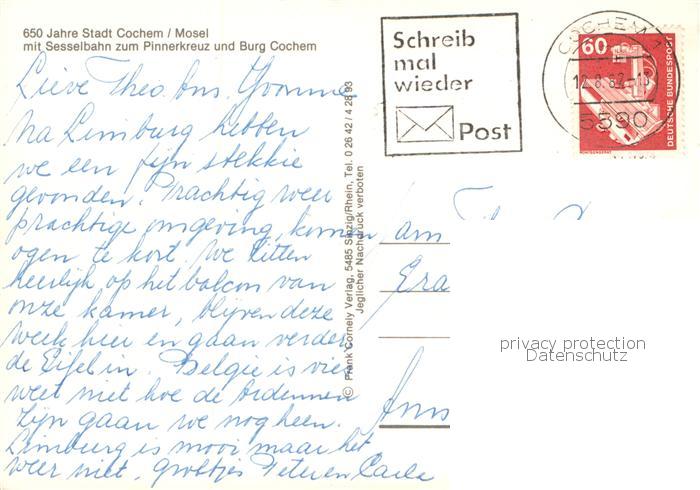 650 Jahre Stadt Cochem / Mosel
mit Sesselbahn zum Pinnerkreuz und Burg Cochem
Lieve Theo, Yvonne
Na Limburg hebben
we een fijn stekkie
gevonden. Prachtig weer
prachtige omgeving, komen
ogen te kort. We zitten
heerlijk op het balcon van
onze kamer, blijven deze
week hier en gaan verder
de Eifel in. Belgie is vies
weet niet hoe de Ardennen
zijn gaan we nog heen.
Limburg is mooi maar het
weer niet. Groetjes Peter en Carla
© Frank Cornely Verlag, 5485 Sinzig/Rhein, Tel. 0 26 42 / 4 28 93
Jeglicher Nachdruck verboten
Schreib
mal
wieder
Post
COCHEM 1
12.8.82-18
5590
60
DEUTSCHE BUNDESPOST
am
Era
Ams
privacy protection
Datenschutz